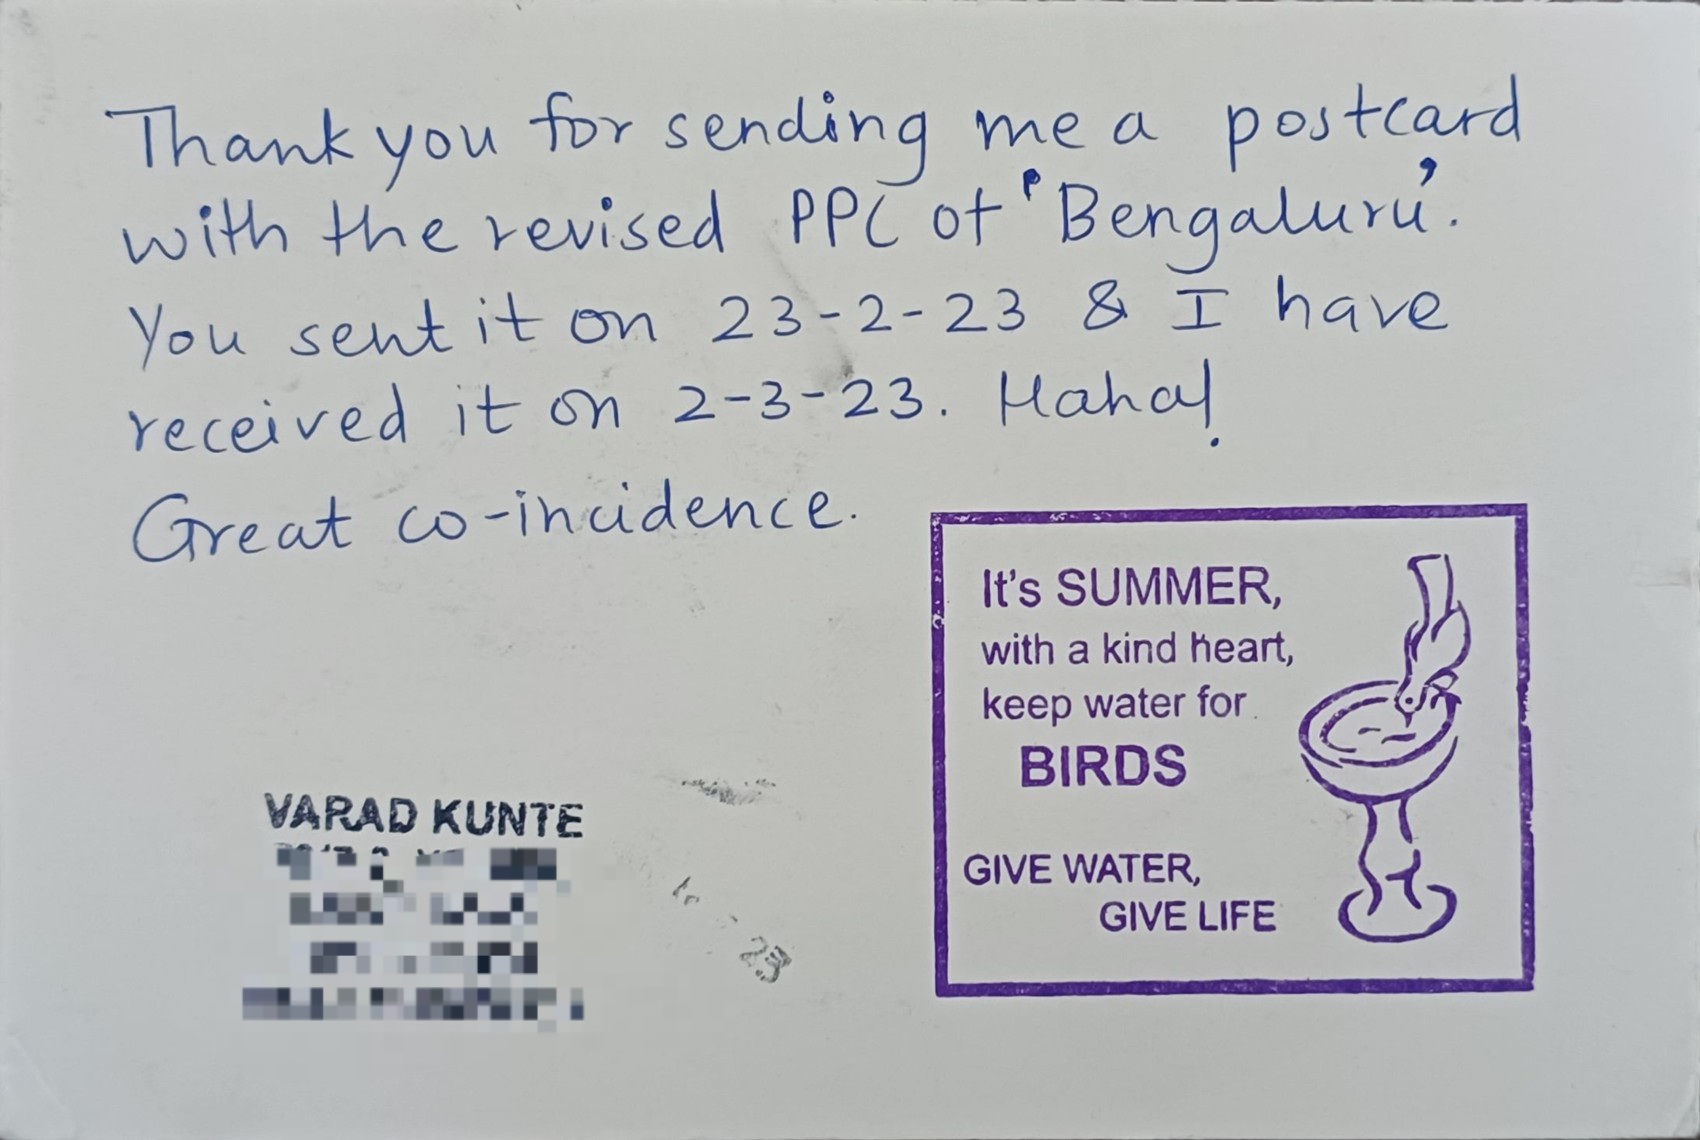 Thank you for sending me a postcard
with the revised PPC of 'Bengaluru'.
You sent it on 23-2-23 & I have
received it on 2-3-23. Haha!
Great co-incidence.
It's SUMMER,
with a kind heart,
keep water for
BIRDS
GIVE WATER,
GIVE LIFE
VARAD KUNTE
23